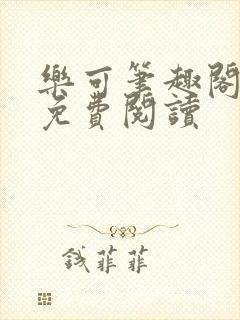 樂可筆趣閣
免費閱讀
錢菲菲